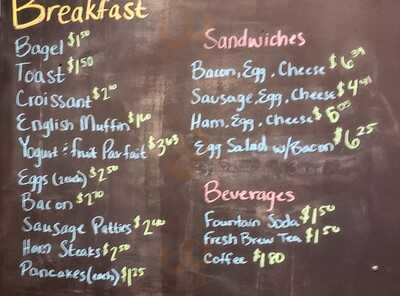 Breakfast
Bagel $1.50
Toast $1.50
Croissant $2.00
English Muffin $1.60
Yogurt & Fruit Parfait $3.65
Eggs (2 each) $2.50
Bacon $2.70
Sausage Patties $2.40
Ham Steaks $2.50
Pancakes (each) $1.25
Sandwiches
Bacon, Egg, Cheese $6.39
Sausage, Egg, Cheese
Ham, Egg, Cheese
Egg Salad w/Bacon $6.25
Beverages
Fountain Soda $1.50
Fresh Brew Tea $1.50
Coffee $1.80